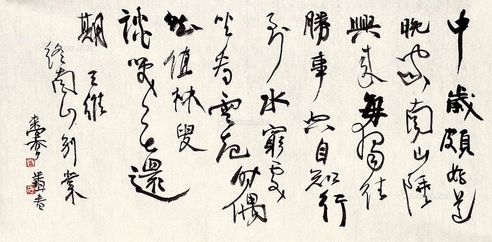 中歲頗好道
晚家南山陲
興來每獨往
勝事空自知行
到水窮處
坐看雲起時偶
然值林叟
談笑无還
期 王維
終南山別業